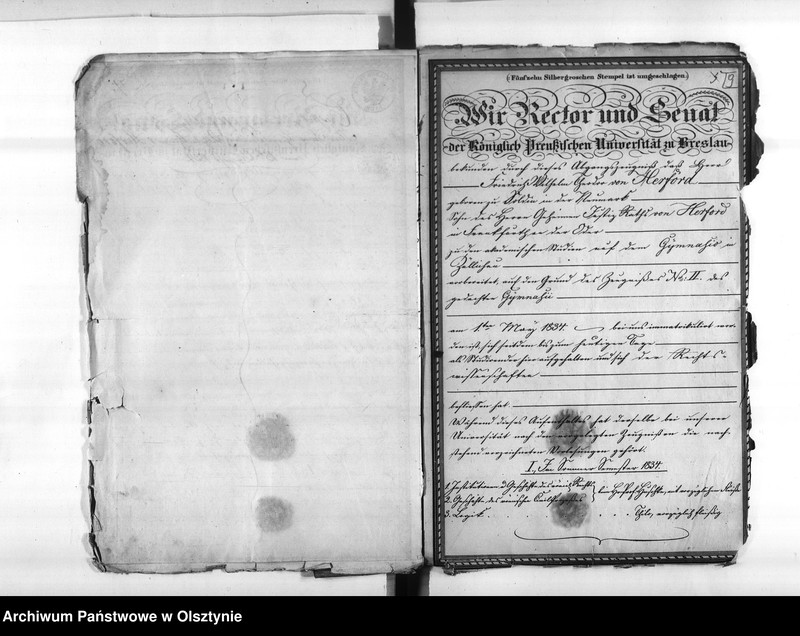 (Fünfzehn Silbergroschen Stempel ist umgeschlagen.)
79
Wir Rector und Senat
der Königlich Preußischen Universität zu Breslau
bekunden durch dieses Abgangszeugniß, daß Herr
Friedrich Wilhelm Theodor von Herford
geboren zu Soldin in der Neumark
Sohn des Herrn Geheimen Justiz Raths von Herford
in Frankfurt an der Oder
zu den akademischen Studien auf dem Gymnasio in
Züllichau
vorbereitet, auf den Grund des Zeugnißes No. II. des
gedachten Gymnasii
am 1ten May 1834. bei uns immatrikulirt wor-
den ist, sich seitdem bis zum heutigen Tage
als Studirender hier aufgehalten und sich der Rechts-
wissenschaften
beflissen hat.
Während dieses Aufenthaltes hat derselbe bei unserer
Universität nach den vorgelegten Zeugnissen die nach-
stehend verzeichneten Vorlesungen gehört.
I., Im Sommer Semester 1834.
1. Institutionen und Geschichte des röm. Rechts
2. Geschichte des römischen bei H. Prof. Huschke, mit vorzüglichem Fleiße
3. Logik . . . . Thilo, vorzüglich fleißig
Archiwum Państwowe w Olsztynie